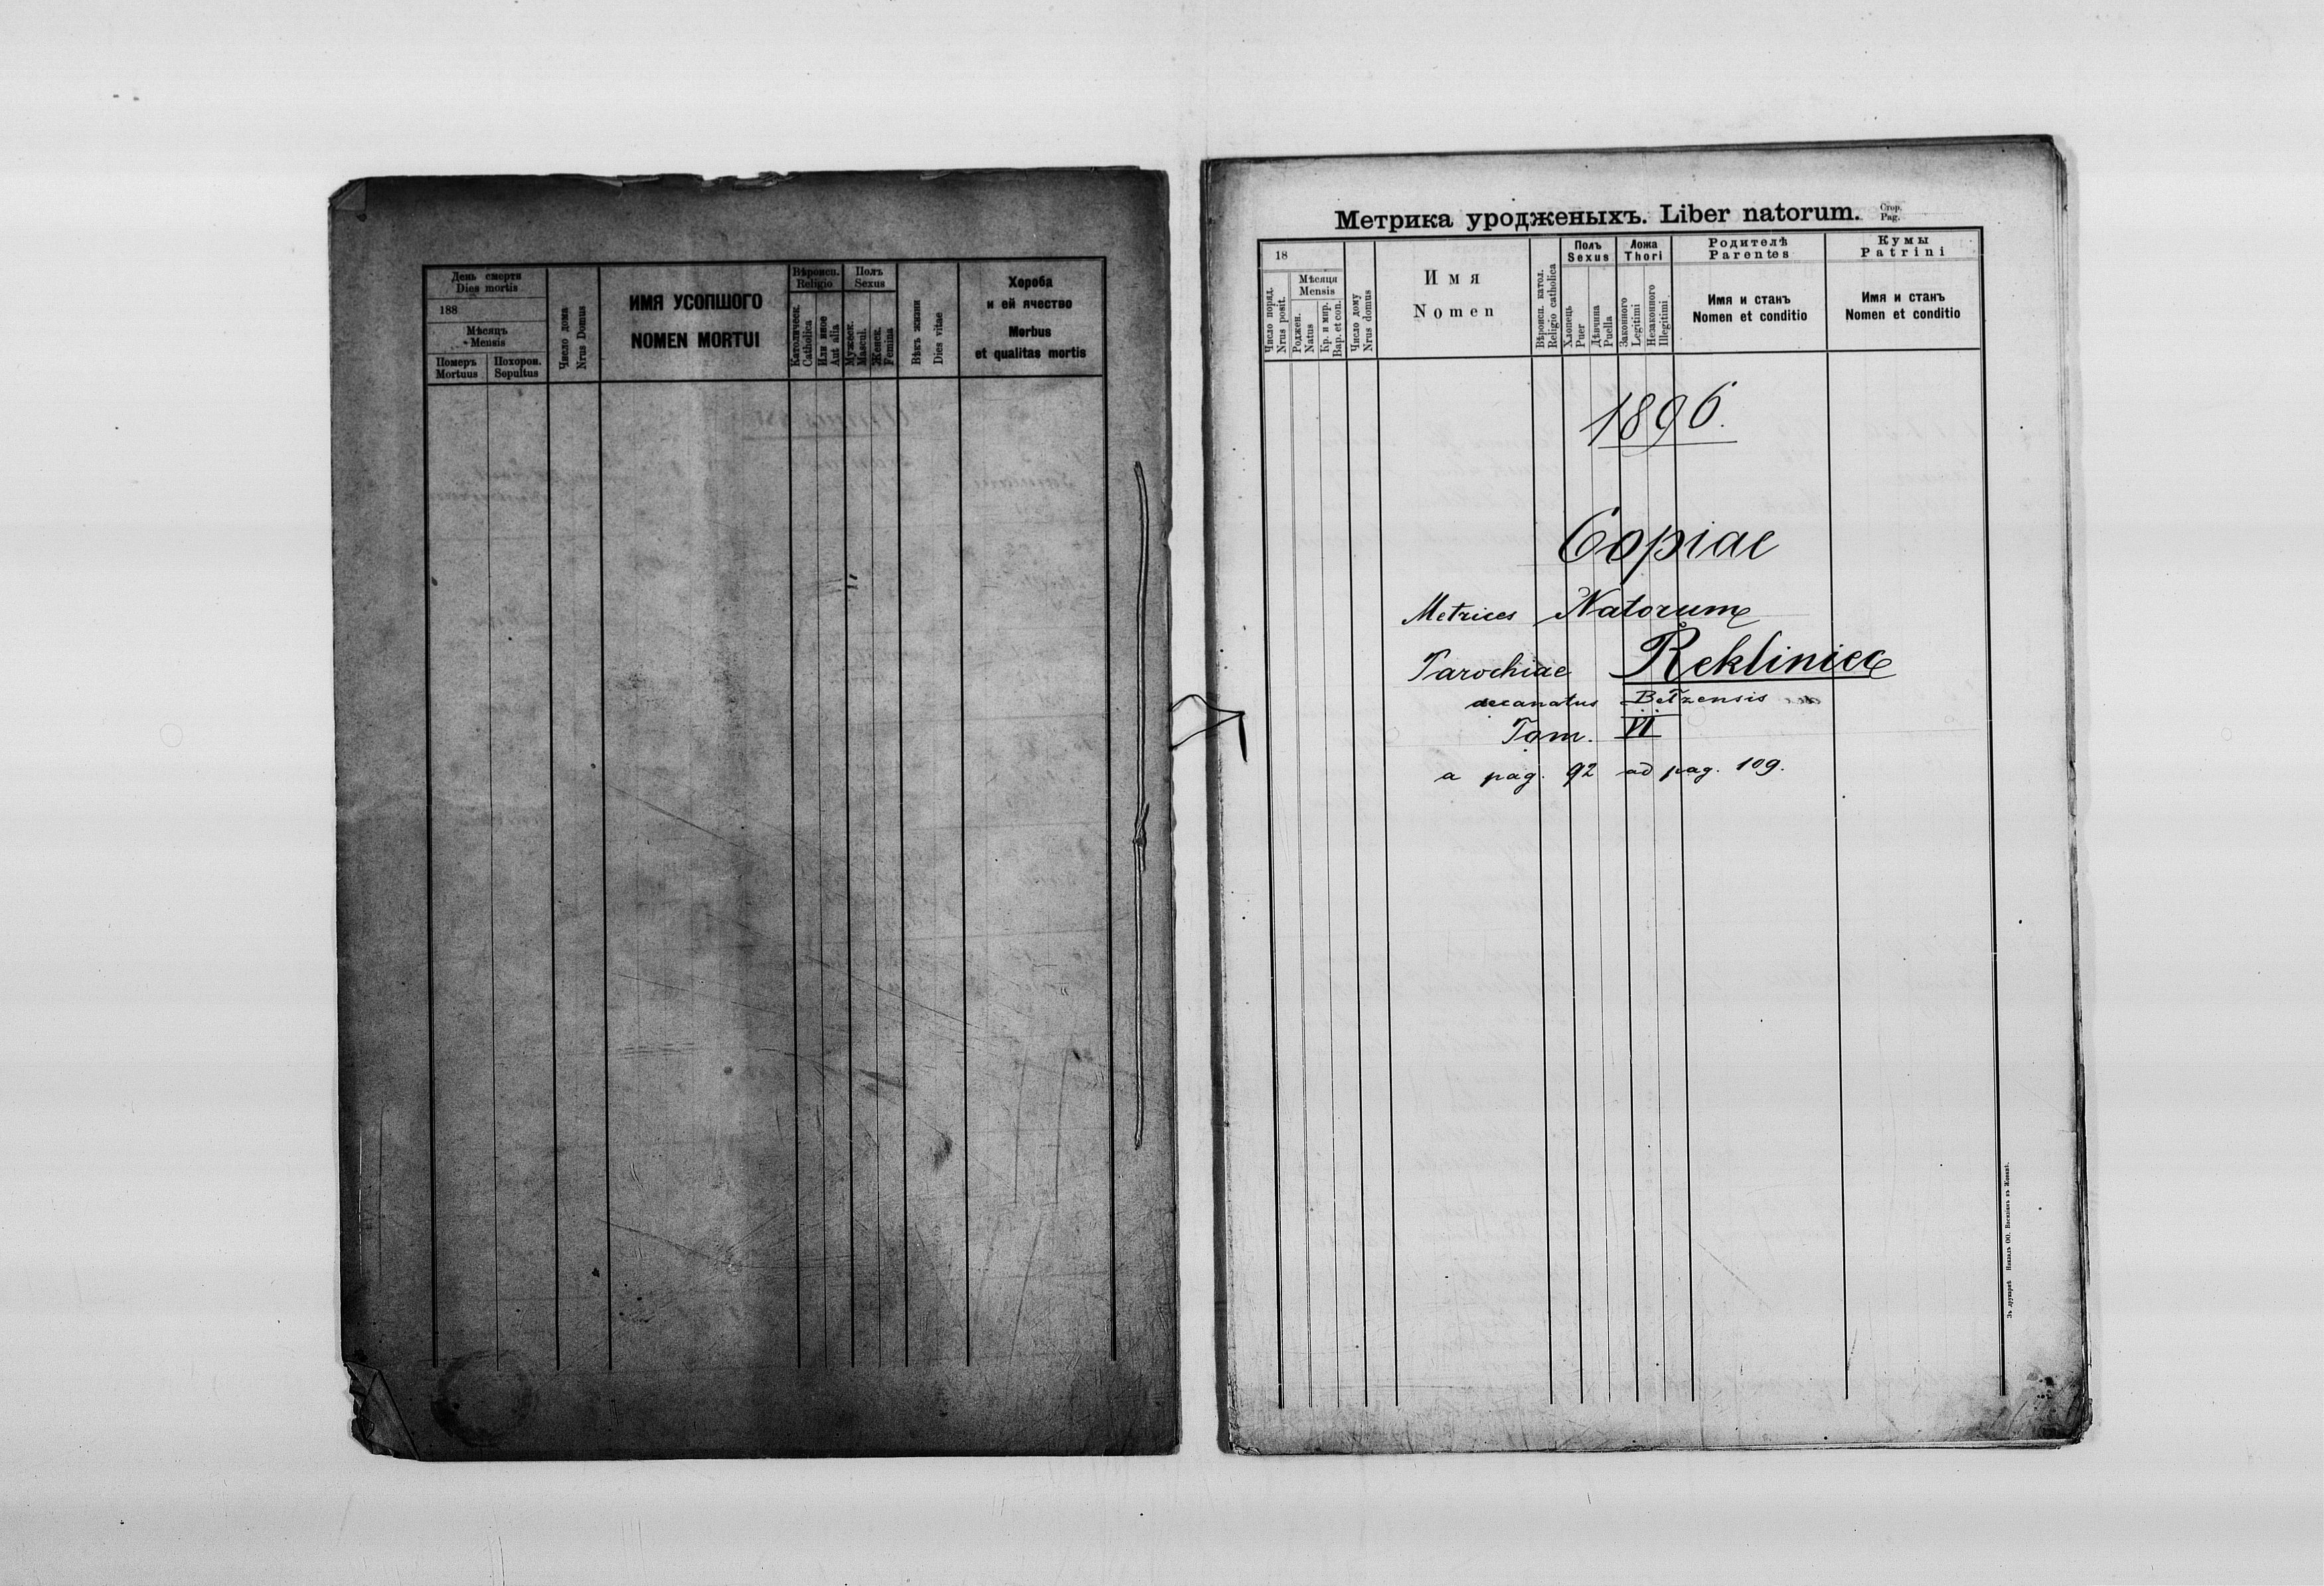 День смерти
Dies mortis
188
Мѣсяцъ
Mensis
Померъ
Mortuus
Похорон.
Sepultus
Число дома
Nrus Domus
ИМЯ УСОПШОГО
NOMEN MORTUI
Вѣроисп.
Religio
Католическ.
Catholica
Или инное
Aut alia
Полъ
Sexus
Мужеск.
Mascul.
Женск.
Femina
Вѣкъ жизни
Dies vitae
Хороба
и ей ячество
Morbus
et qualitas mortis
Метрика уродженыхъ. Liber natorum.
Стор.
Pag.
18
Число поряд.
Nrus posit.
Мѣсяця
Mensis
Роджен.
Natus
Кр. и мир.
Bap. et con.
Число дому
Nrus domus
Имя
Nomen
Вѣроисп. катол.
Religio catholica
Полъ
Sexus
Хлопець
Puer
Дѣвчина
Puella
Ложа
Thori
Законного
Legitimi
Незаконного
Illegitimi
Родителѣ
Parentes
Имя и станъ
Nomen et conditio
Кумы
Patrini
Имя и станъ
Nomen et conditio
1896.
Copiae
Metrices Natorum
Parochiae Rekliniec
decanatus Bełzensis
Tom. VI
a pag. 92 ad pag. 109.
Зъ друкарнѣ Накладъ ОО. Василіянъ въ Жовквѣ.